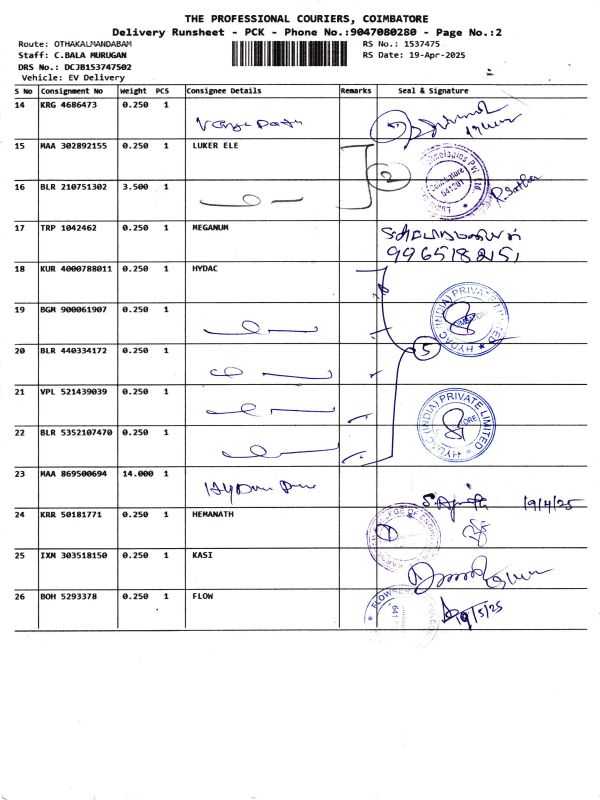 THE PROFESSIONAL COURIERS, COIMBATORE
Delivery Runsheet - PCK - Phone No.:9047080280 - Page No.:2
Route: OTHAKALMANDABAM
RS No.: 1537475
Staff: C.BALA MURUGAN
RS Date: 19-Apr-2025
DRS No.: DCJB153747502
Vehicle: EV Delivery
S No Consignment No Weight PCS Consignee Details Remarks Seal & Signature
14 KRG 4686473 0.250 1
15 MAA 302892155 0.250 1 LUKER ELE
16 BLR 210751302 3.500 1
2
641201
17 TRP 1042462 0.250 1 MEGANUM
18 KUR 4000788011 0.250 1 HYDAC
19 BGM 900061907 0.250 1
HYDAC (INDIA) PRIVATE LIMITED
20 BLR 440334172 0.250 1
5
21 VPL 521439039 0.250 1
22 BLR 5352107470 0.250 1
HYDAC (INDIA) PRIVATE LIMITED
23 MAA 869500694 14.000 1
19/4/25
24 KRR 50181771 0.250 1 HEMANATH
25 IXM 303518150 0.250 1 KASI
26 BOH 5293378 0.250 1 FLOW
641